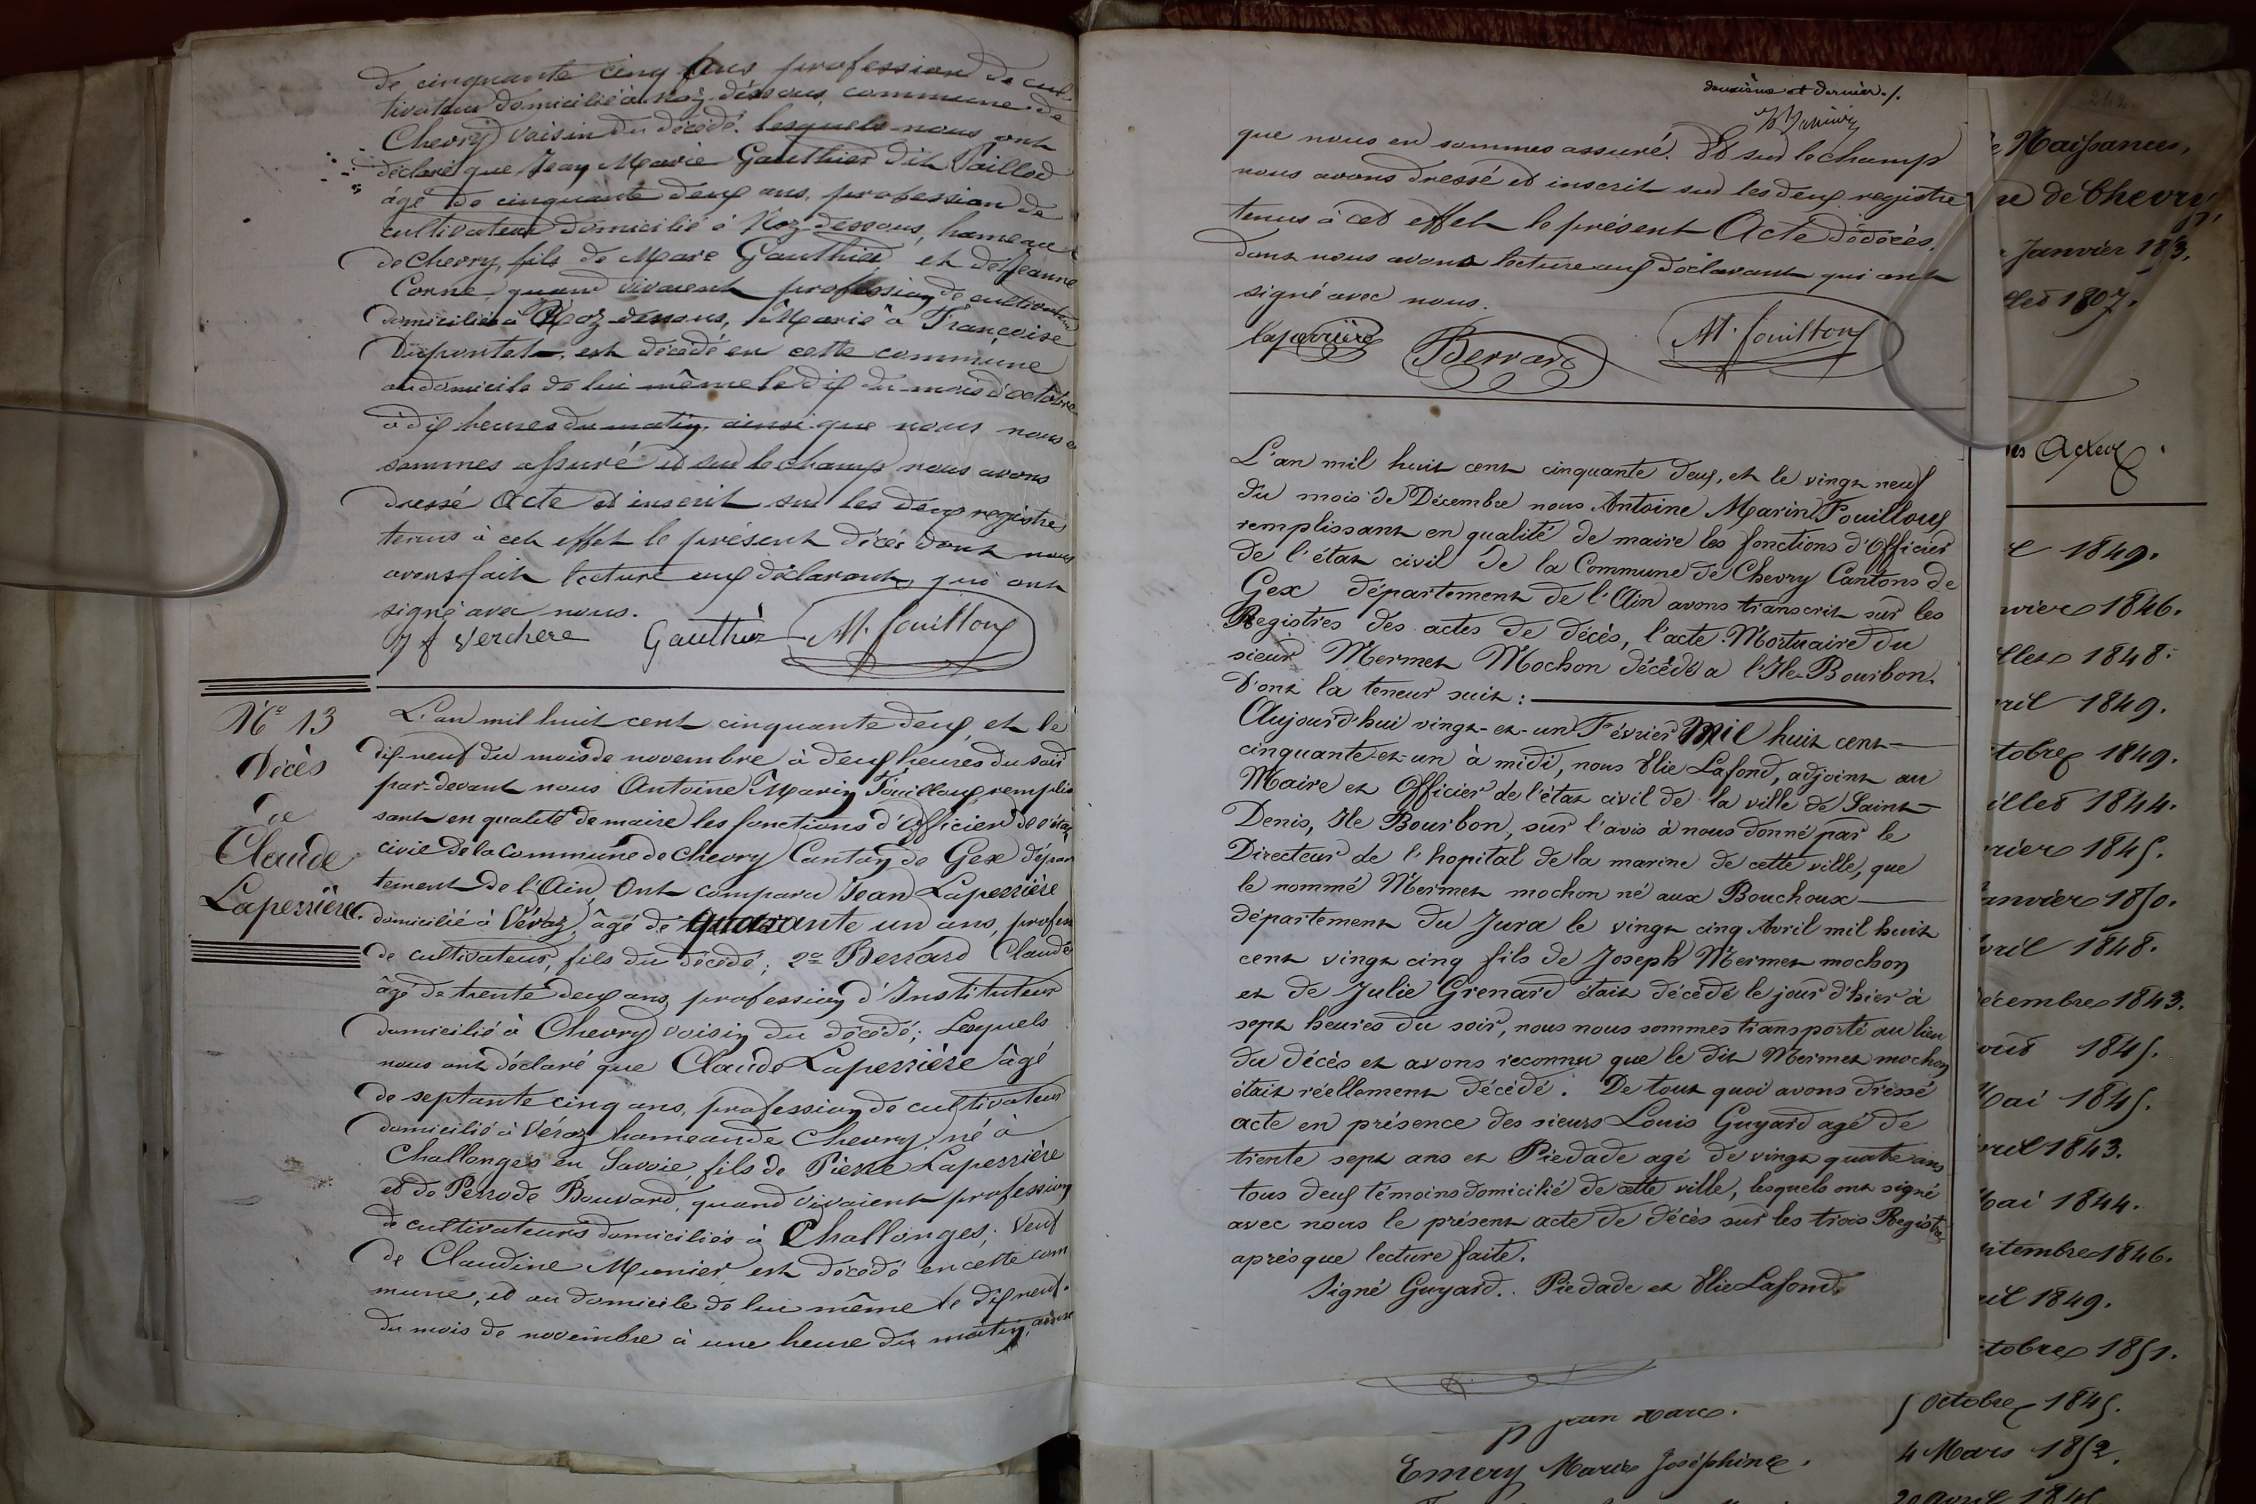 de cinquante cinq ans profession de cul
tivateur domicilié à Noz-dessous, commune de
Chevry voisin du décédé. lesquels nous ont
déclaré que Jean Marie Gauthier dit Paillod
âgé de cinquante deux ans, profession de
cultivateur domicilié à Noz dessous, hameau
de Chevry, fils de Marc Gauthier et de Jeanne
Corne, quand vivaient profession de cultivateur
domiciliés à Noz dessous, Marié à Françoise
Dupontet, est décédé en cette commune
au domicile de lui même le dix du mois d'octobre
à dix heures du matin, ainsi que nous nous en
sommes assuré et sur le champ nous avons
dressé Acte et inscrit sur les deux registres
tenus à cet effet le présent décès dont nous
avons fait lecture aux déclarants, qui ont
signé avec nous.
J f Verchere Gauthier M. fouilloux
N° 13
Décès
de
Claude
Laperrière.
L'an mil huit cent cinquante deux, et le
dix-neuf du mois de novembre à deux heures du soir
par-devant nous Antoine Marin Fouilloux, remplis
sant en qualité de maire les fonctions d'Officier de l'état
civil de la Commune de Chevry Canton de Gex dépar
tement de l'Ain, Ont comparu Jean Laperrière
domicilié à Véraz, âgé de quarante un ans, profess
de cultivateur, fils du décédé; 2° Berrard Claude
âgé de trente deux ans, profession d'Instituteur
domicilié à Chevry voisin du décédé; Lesquels
nous ont déclaré que Claude Laperrière âgé
de septante cinq ans, profession de cultivateur
domicilié à Véraz hameau de Chevry, né à
Challonges en Savoie, fils de Pierre Laperrière
et de Perrode Bouvard, quand vivaient profession
de cultivateurs domiciliés à Challonges; Veuf
de Claudine Munier, est décédé en cette com
mune, et au domicile de lui même le dix neuf
du mois de novembre à une heure du matin, ainsi
deuxième et dernier./.
que nous en sommes assuré. Et sur le champ
nous avons dressé et inscrit sur les deux registre
tenus à cet effet le présent Acte de décès.
dont nous avons lecture aux déclarants qui ont
signé avec nous.
laperrière Berrard M. fouilloux
L'an mil huit cent cinquante deux, et le vingt neuf
du mois de Décembre nous Antoine Marin Fouilloux
remplissant en qualité de maire les fonctions d'Officier
de l'état civil de la Commune de Chevry Cantons de
Gex département de l'Ain avons transcrit sur les
Registres des actes de décès, l'acte Mortuaire du
sieur Mermet Mochon décédé a l'Ile-Bourbon.
D'ont la teneur suit :
Aujourd'hui vingt-et-un Février Mil huit cent
cinquante-et-un à midi, nous Elie Lafond, adjoint au
Maire et Officier de l'état civil de la ville de Saint-
Denis, Ile Bourbon, sur l'avis à nous donné par le
Directeur de l'hopital de la marine de cette ville, que
le nommé Mermet mochon né aux Bouchoux
département du Jura le vingt cinq Avril mil huit
cent vingt cinq fils de Joseph Mermet mochon
et de Julie Grenard était décédé le jour d'hier à
sept heures du soir, nous nous sommes transporté au lieu
du décès et avons reconnu que le dit Mermet mochon
était réellement décédé. De tout quoi avons dressé
acte en présence des sieurs Louis Guyard agé de
trente sept ans et Piedade agé de vingt quatre ans
tous deux témoins domicilié de cette ville, lesquels ont signé
avec nous le présent acte de décès sur les trois Registres
après que lecture faite.
Signé Guyard. Piedade et Elie Lafond.
Naissances,
de Chevry,
Janvier 183.
1807.
Actes
1849.
1846.
1848.
1849.
1849.
1844.
1845.
1850.
1848.
1843.
1845.
Mai 1845.
1843.
Mai 1844.
1846.
1849.
1851.
jean marc.
5 Octobre 1845.
Emery Marie Joséphine.
4 Mars 1852.